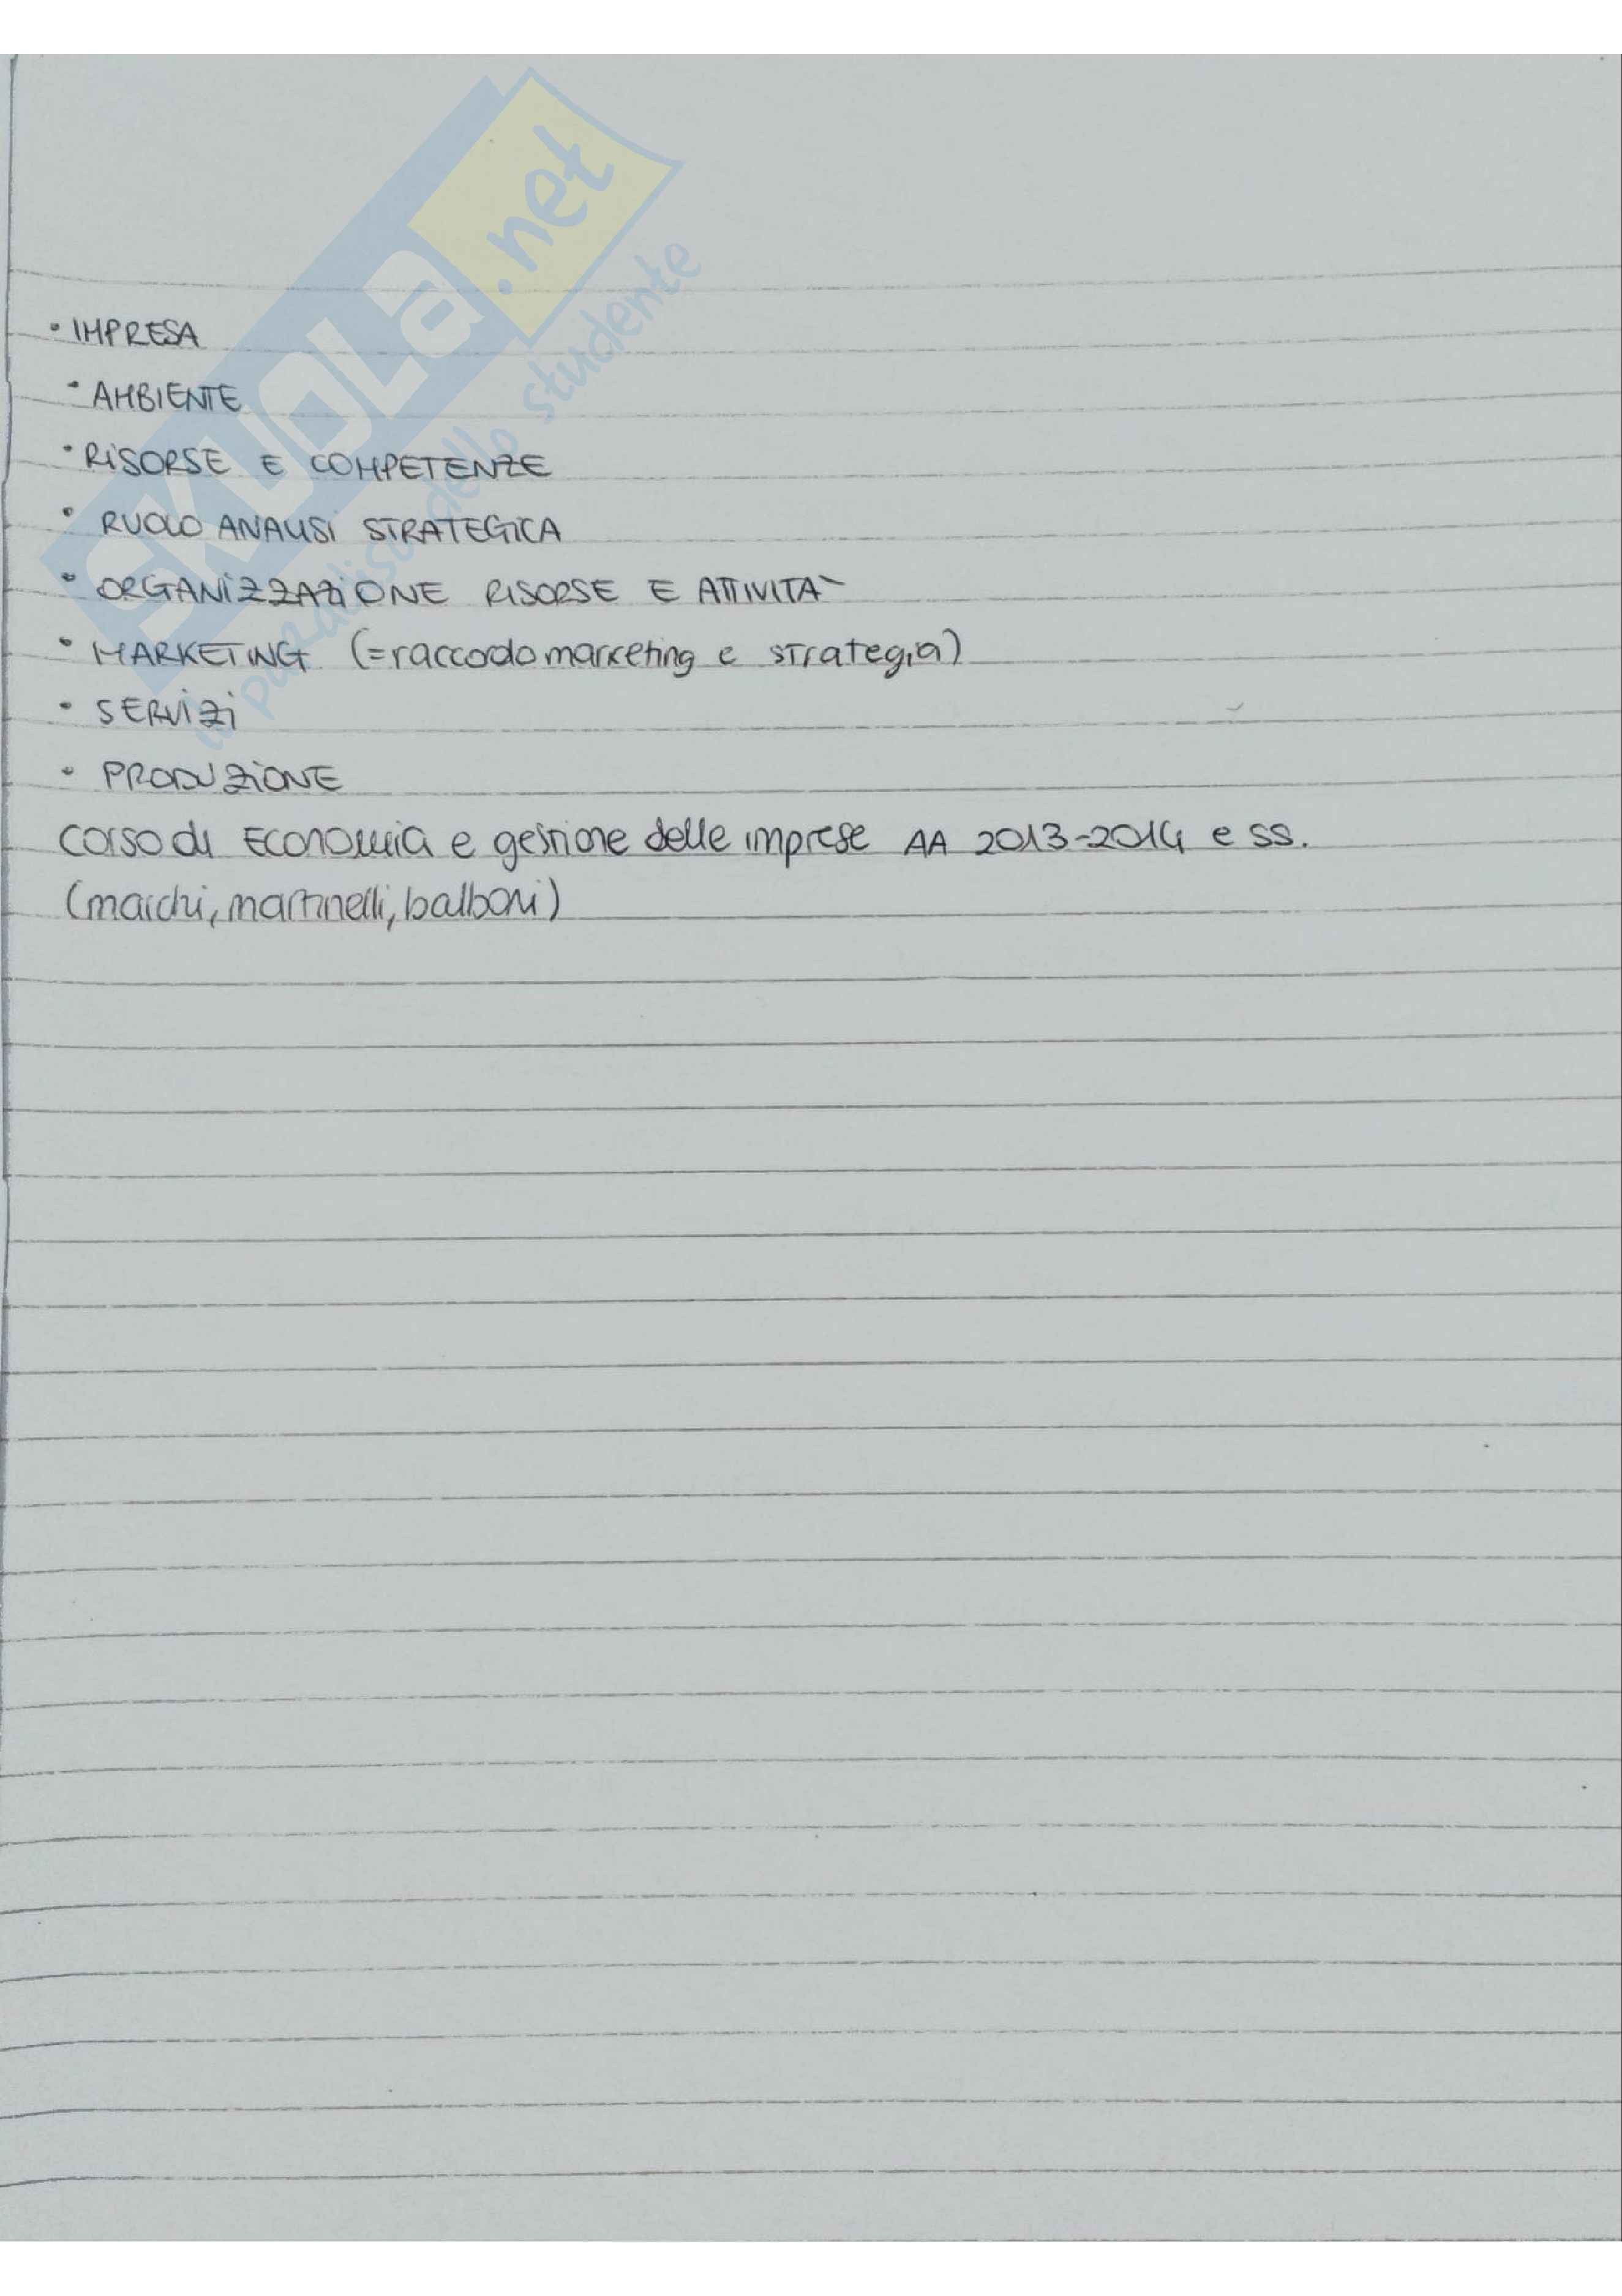 SKUOLa.net
il paradiso dello studente
• IMPRESA
• AMBIENTE
• RISORSE E COMPETENZE
• RUOLO ANALISI STRATEGICA
• ORGANIZZAZIONE RISORSE E ATTIVITA`
• MARKETING (=raccordo marketing e strategia)
• SERVIZI
• PRODUZIONE
corso di Economia e gestione delle imprese AA 2013-2014 e ss.
(marchi, martinelli, balboni)